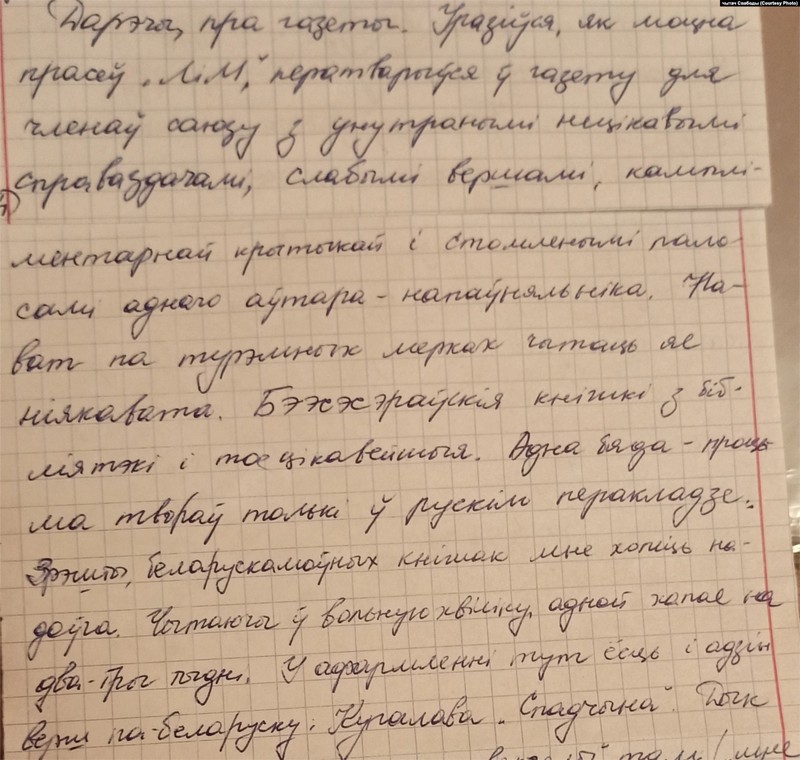 чытач Свабоды (Courtesy Photo)
Дарэчы, пра газеты. Уразіўся, як моцна
прасеў „ЛіМ“, ператварыўся ў газету для
членаў саюзу з унутранымі нецікавымі
справаздачамі, слабымі вершамі, камплі-
ментарнай крытыкай і стомленымі пало-
самі аднаго аўтара – напаўняльніка. На-
ват па турэмных мерках чытаць яе
ніякавата. Бээсэсэраўскія кніжкі з біб-
ліятэкі і тое цікавейшыя. Адна бяда –
ма твораў толькі ў рускім перакладзе.
Зрэшты, беларускамоўных кніжак мне хопіць на-
доўга. Чытаючы ў вольную хвіліну, адной хапае на
два-тры тыдні. У афармленні тут ёсць і адзін
верш па-беларуску: Купалава „Спадчына“. Дык
там (мне